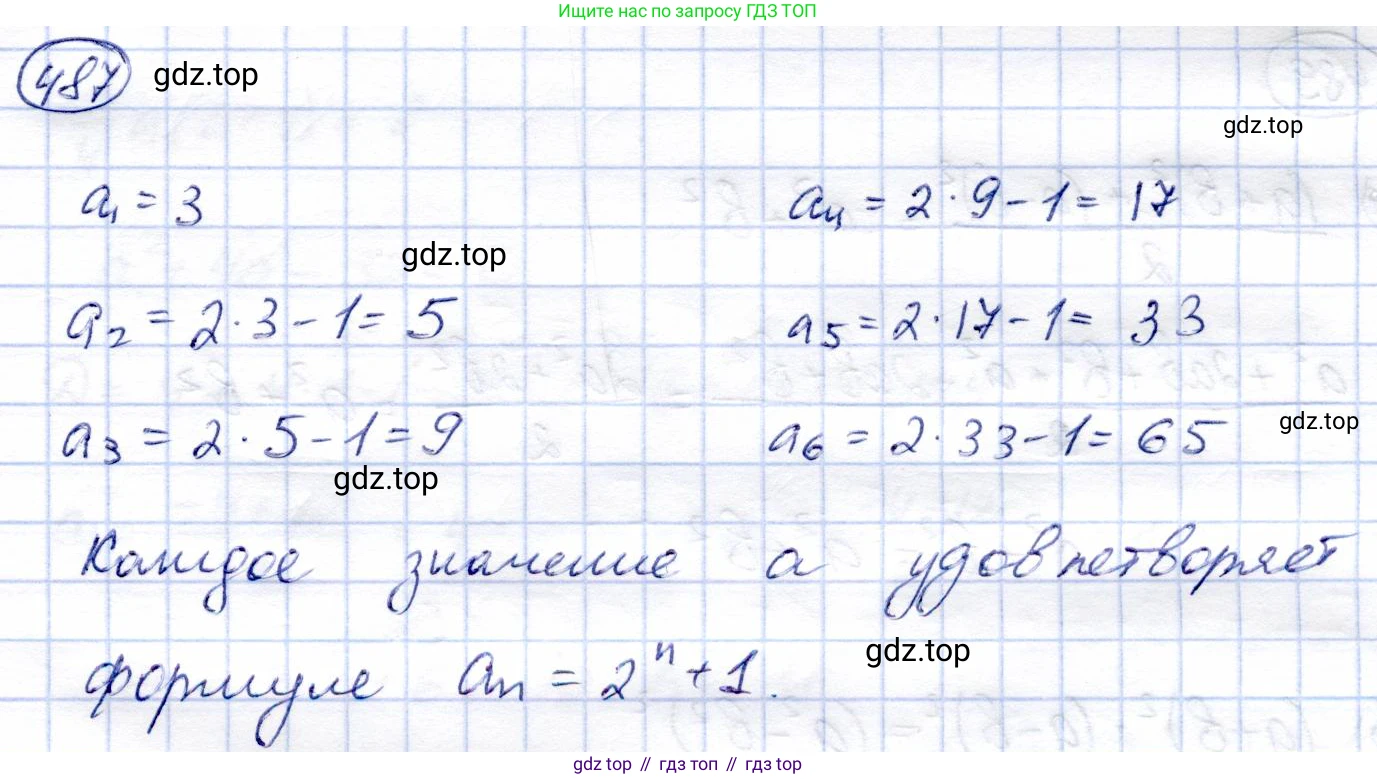 Ищите нас по запросу ГДЗ ТОП
487 gdz.top
gdz.top
a₁ = 3
a₄ = 2·9-1= 17
gdz.top
a₂ = 2·3-1= 5
a₅ = 2·17-1= 33
a₃ = 2·5-1=9
a₆ = 2·33-1= 65
gdz.top
gdz.top
Каждое значение a удовлетворяет
формуле aₙ = 2ⁿ+1.
gdz.top
gdz top // гдз топ // гдз top